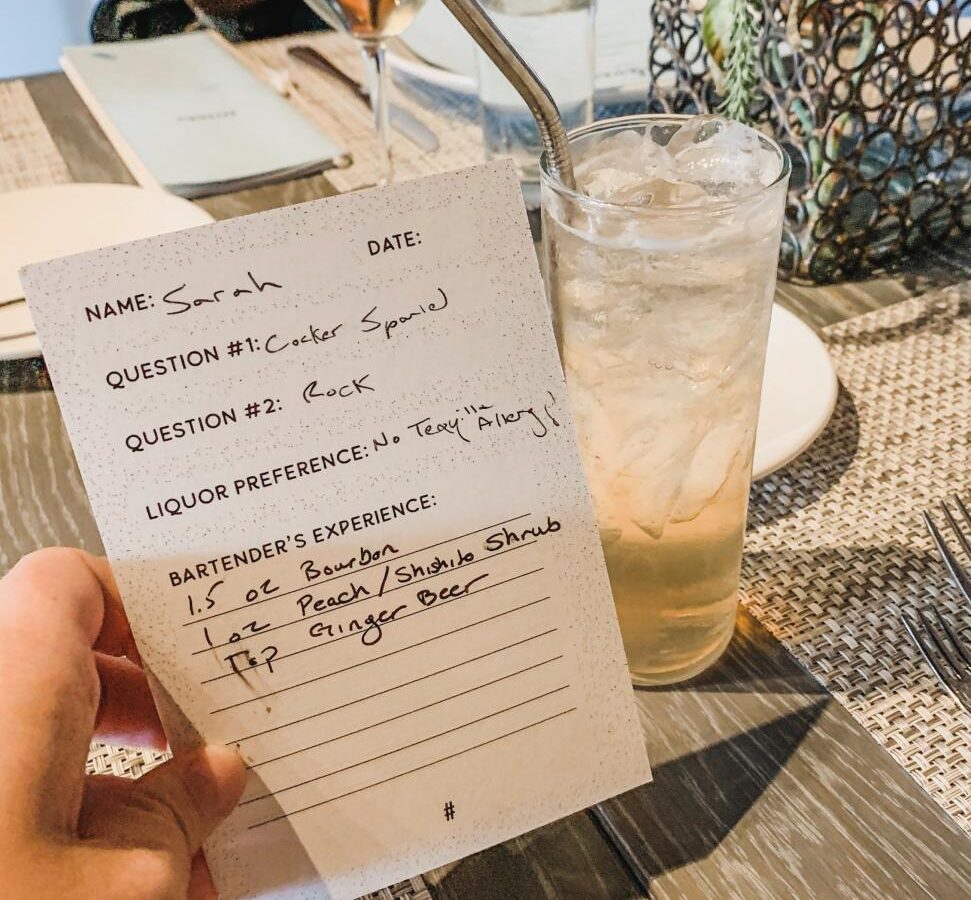 DATE:
NAME: Sarah
QUESTION #1: Cocker Spaniel
QUESTION #2: Rock
LIQUOR PREFERENCE: No "Allergy"
BARTENDER'S EXPERIENCE:
1.5 oz Bourbon
1 oz Peach/Shishito Shrub
Top Ginger Beer
#